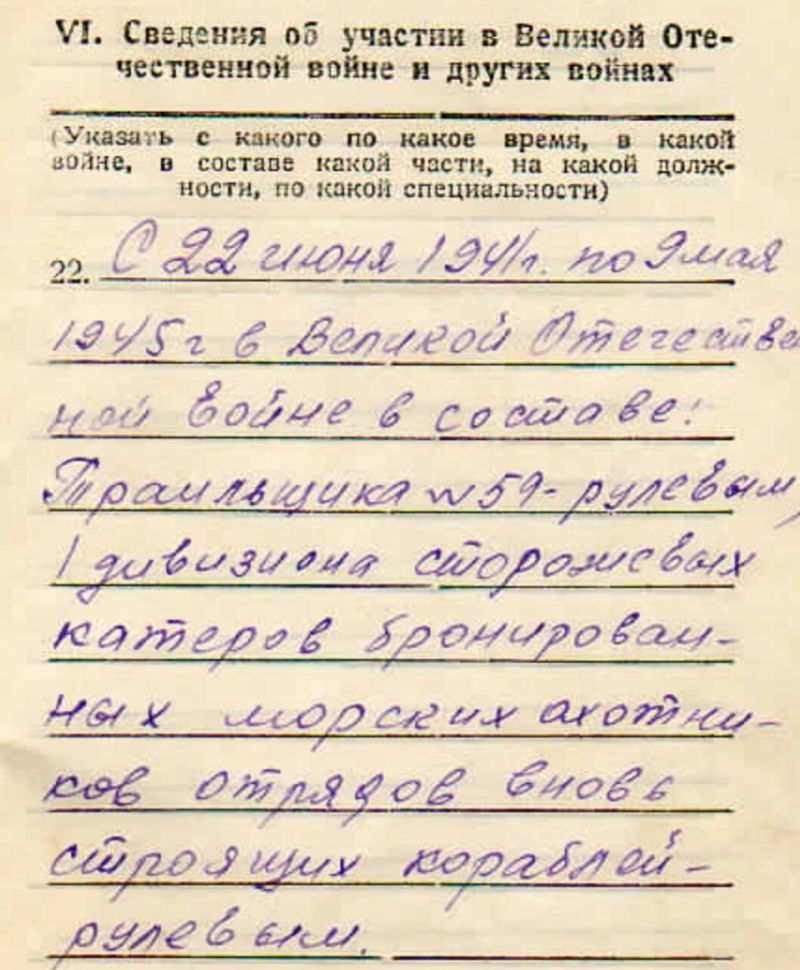 VI. Сведения об участии в Великой Оте-
чественной войне и других войнах
(Указать с какого по какое время, в какой
войне, в составе какой части, на какой долж-
ности, по какой специальности)
22. С 22 июня 1941г. по 9 мая
1945г в Великой Отечествен
ной войне в составе:
Тральщика № 59 - рулевым,
1 дивизиона сторожевых
катеров бронирован-
ных морских охотни-
ков отрядов вновь
строящих кораблей -
рулевым.